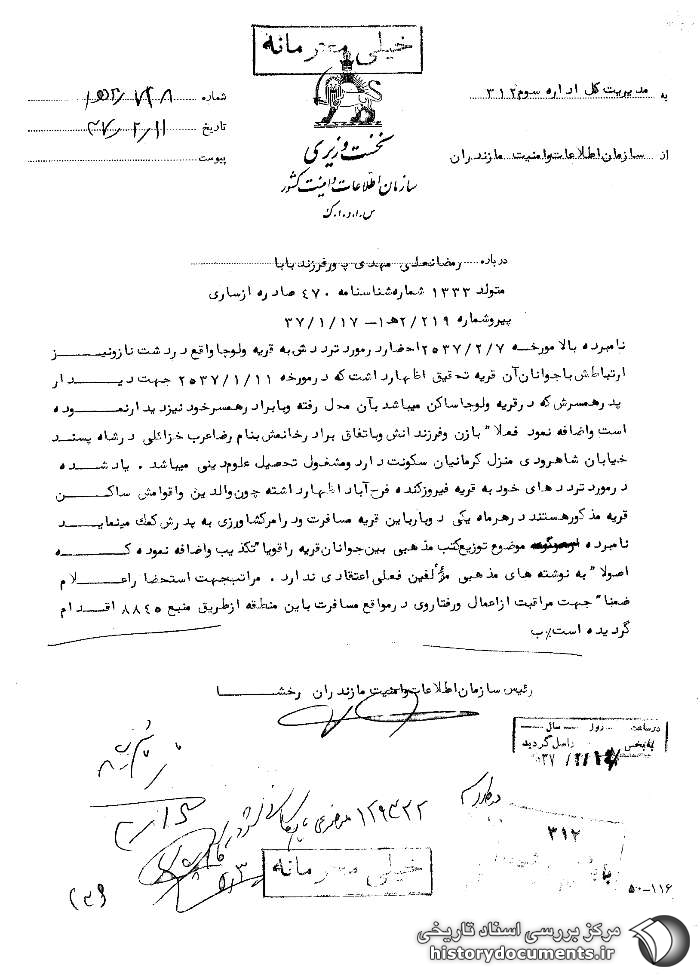 خیلی محرمانه
به مدیریت کل اداره سوم ۳۱۲
شماره ۷۴۸/۲ه۱
از سازمان اطلاعات و امنیت مازندران
تاریخ ۳۷/۲/۱۱
پیوست
نخست وزیری
سازمان اطلاعات و امنیت کشور
س.ا.و.ا.ک
درباره رمضانعلی مهدی پور فرزند بابا
متولد ۱۳۳۳ شماره شناسنامه ۴۷۰ صادره از ساری
پیرو شماره ۲/۲۱۹ه۱ – ۳۷/۱/۱۷
نامبرده بالا مورخه ۲۵۳۷/۲/۷ احضار در مورد ترددش به قریه ولوجا واقع در دشت ناز و نیز
ارتباطش با جوانان آن قریه تحقیق اظهار داشت که در مورخه ۲۵۳۷/۱/۱۱ جهت دیدار
پدر همسرش که در قریه ولوجا ساکن میباشد بآن محل رفته و با برادر همسر خود نیز دیدار نموده
است و اضافه نمود فعلا" با زن و فرزندانش و باتفاق برادر خانمش بنام رضا عرب خزائلی در شاه پسند
خیابان شاهرودی منزل کرمانیان سکونت دارد و مشغول تحصیل علوم دینی میباشد . یاد شده
در مورد ترددهای خود به قریه فیروزکنده فرح آباد اظهار داشته چون والدین و اقوامش ساکن
قریه مذکور هستند در هر ماه یکی دو بار باین قریه مسافرت و در امر کشاورزی به پدرش کمک مینماید
نامبرده موضوع توزیع کتب مذهبی بین جوانان قریه را قویا" تکذیب و اضافه نموده که
اصولا" به نوشته های مذهبی مؤلفین فعلی اعتقادی ندارد . مراتب جهت استحضار اعلام
ضمنا" جهت مراقبت از اعمال و رفتار وی در مواقع مسافرت باین منطقه از طریق منبع ۸۸۴۵ اقدام
گردیده است/ب
رئیس سازمان اطلاعات و امنیت مازندران رخشا
در ساعت روز سال
بایگانی واصل گردید
۱۲۹۴۲۲
۳۱۲
خیلی محرمانه
۵۰-۱۱۶
مرکز بررسی اسناد تاریخی
historydocuments.ir